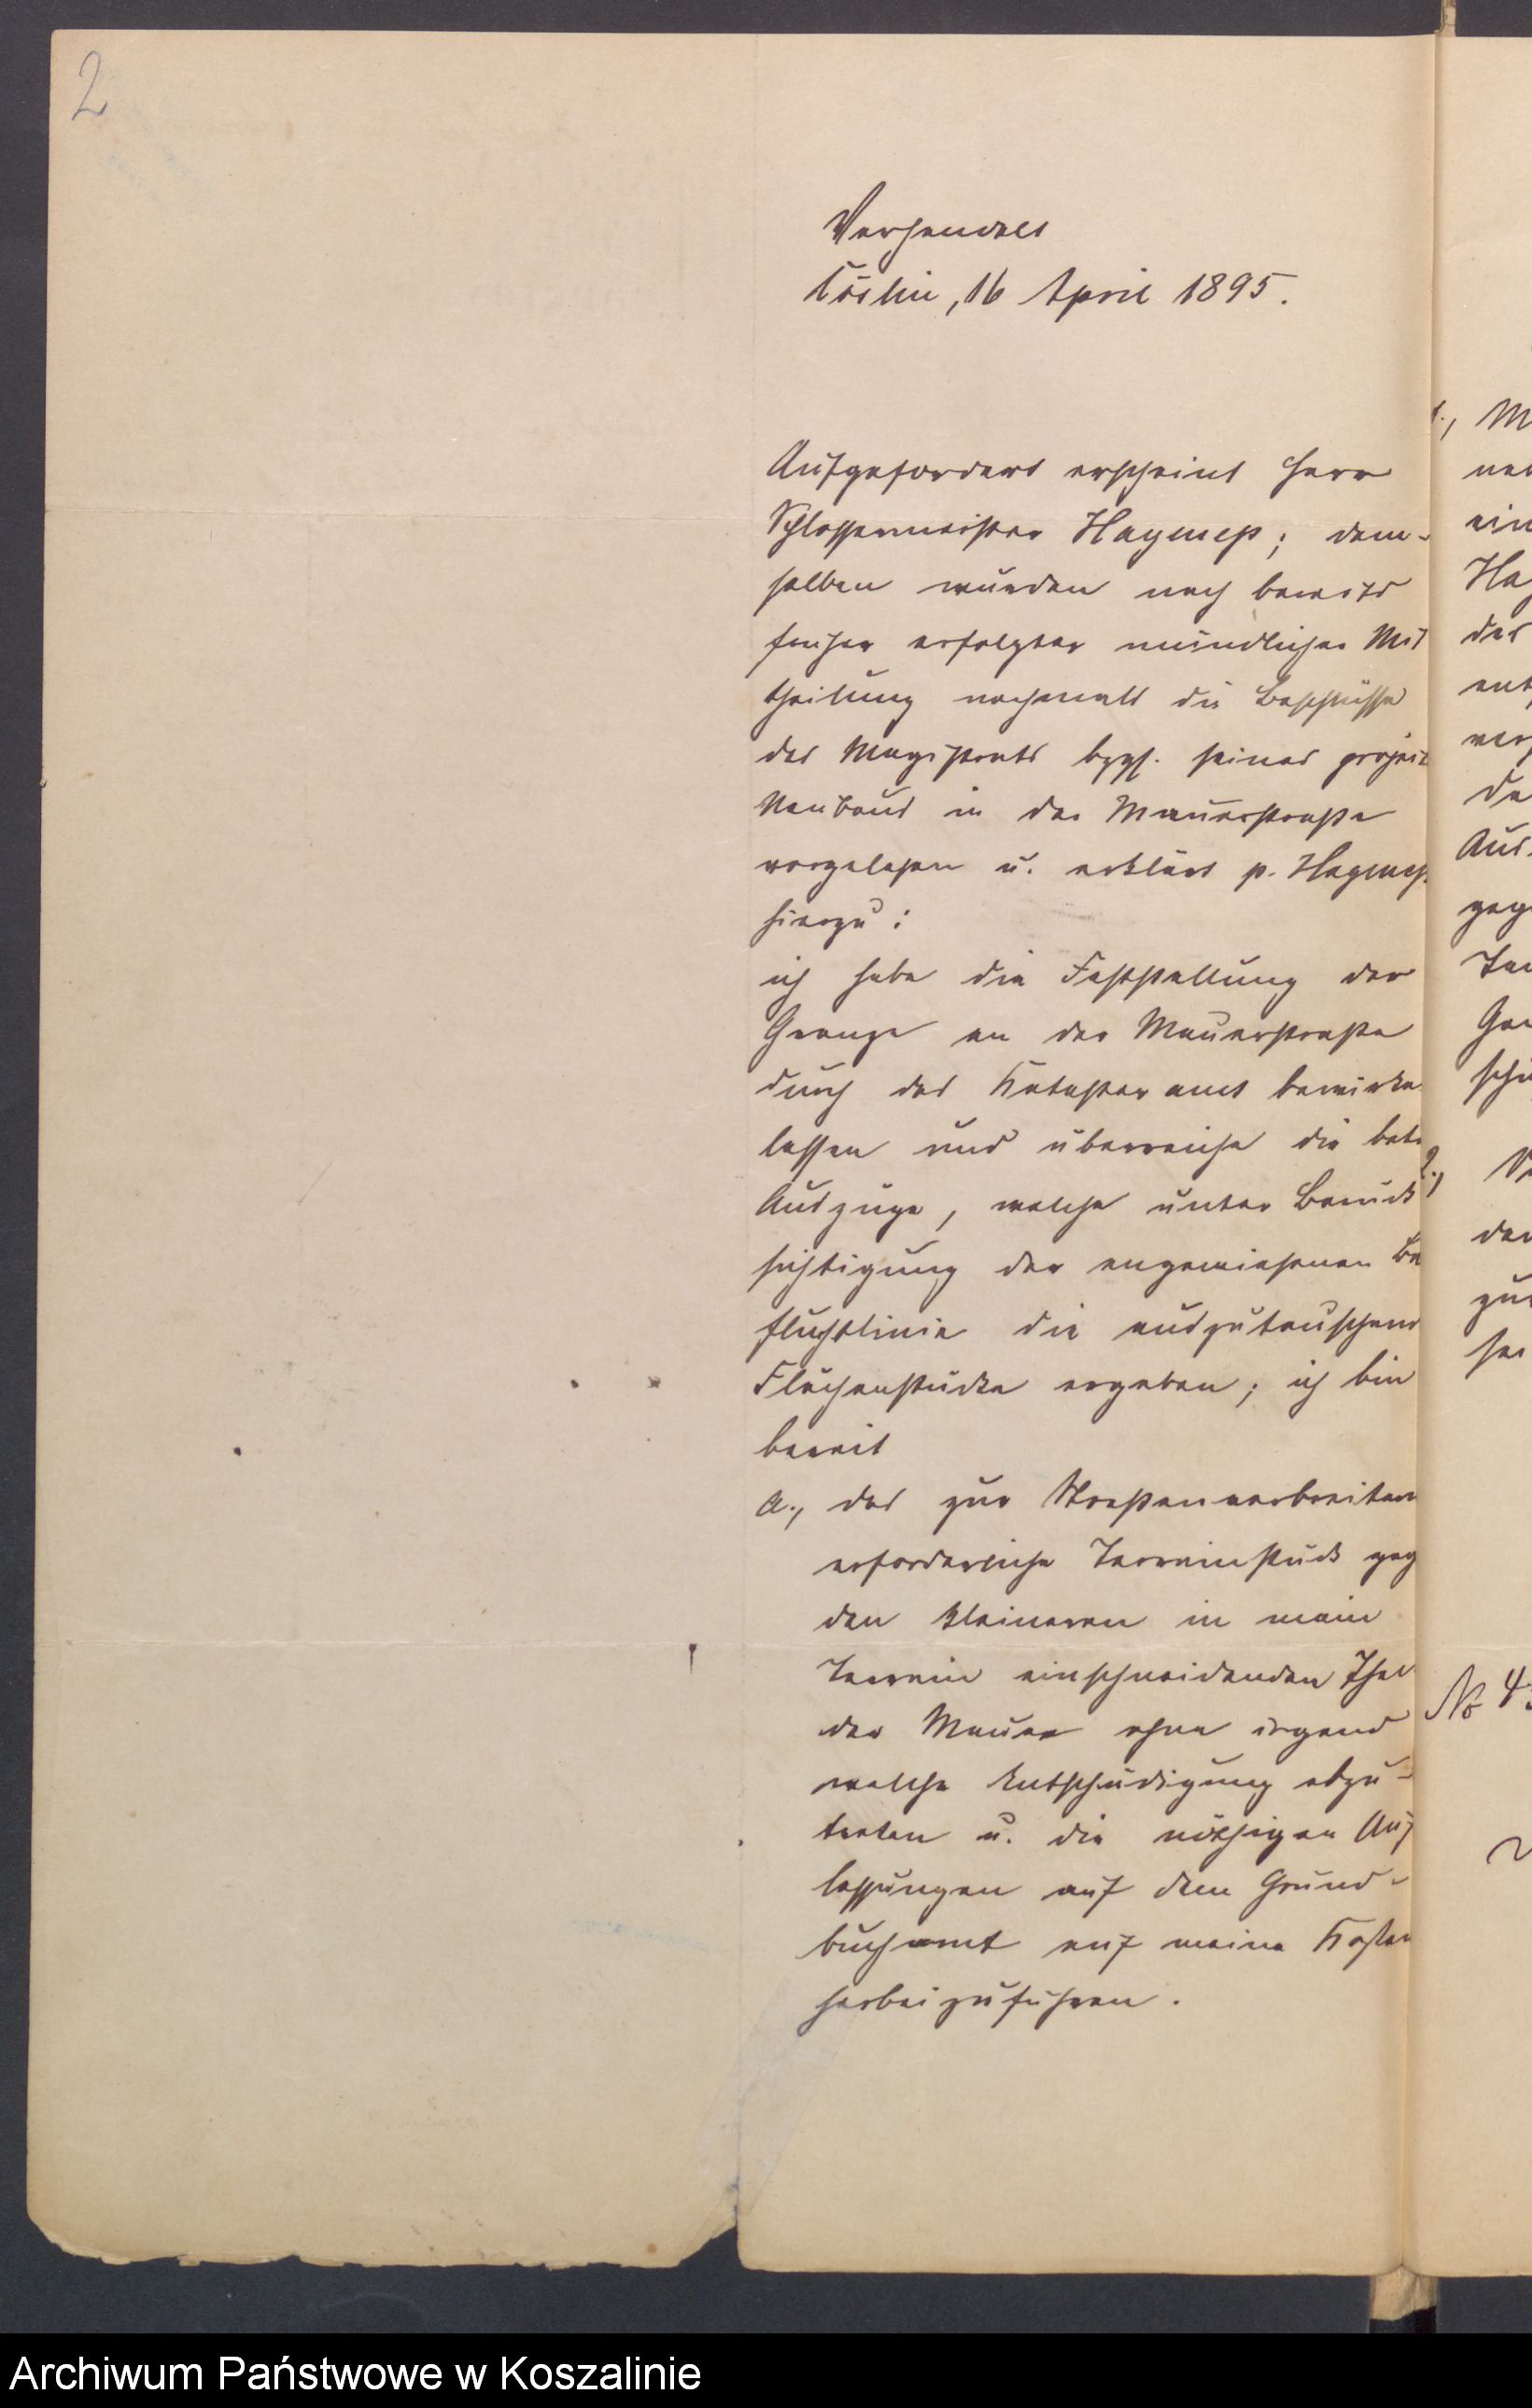 2
Verhandelt
Cöslin, 16 April 1895.
Aufgefordert erscheint Herr
Schlossermeister Hagmeß; dem-
selben wurden nach bereits
früher erfolgter mündlicher Mit
theilung nochmals die Beschlüsse
des Magistrats bzgl. seines projekt
Neubaus in der Mauerstraße
vorgelesen u. erklärt p. Hagmeß
hierzu:
ich habe die Feststellung der
Grenze an der Mauerstraße
durch das Katasteramt bewirken
lassen und überreiche die betr
Auszüge, welche unter Berück
sichtigung der angewiesenen Bau
fluchtlinie die auszutauschend
Flächenstücke ergeben; ich bin
bereit
a., das zur Straßenverbreiter
erforderliche Terrainstück geg
den kleineren in mein
Terrain einschneidenden Theil
der Mauer ohne irgend
welche Entschädigung abzu-
treten u. die nöthigen Auf
lassungen auf dem Grund-
buchamt auf meine Kosten
herbeizuführen.
1., M
ein
Ha
des
ent
ver
de
Aus
geg
Ter
2.,
der
zu
№ 4
Archiwum Państwowe w Koszalinie